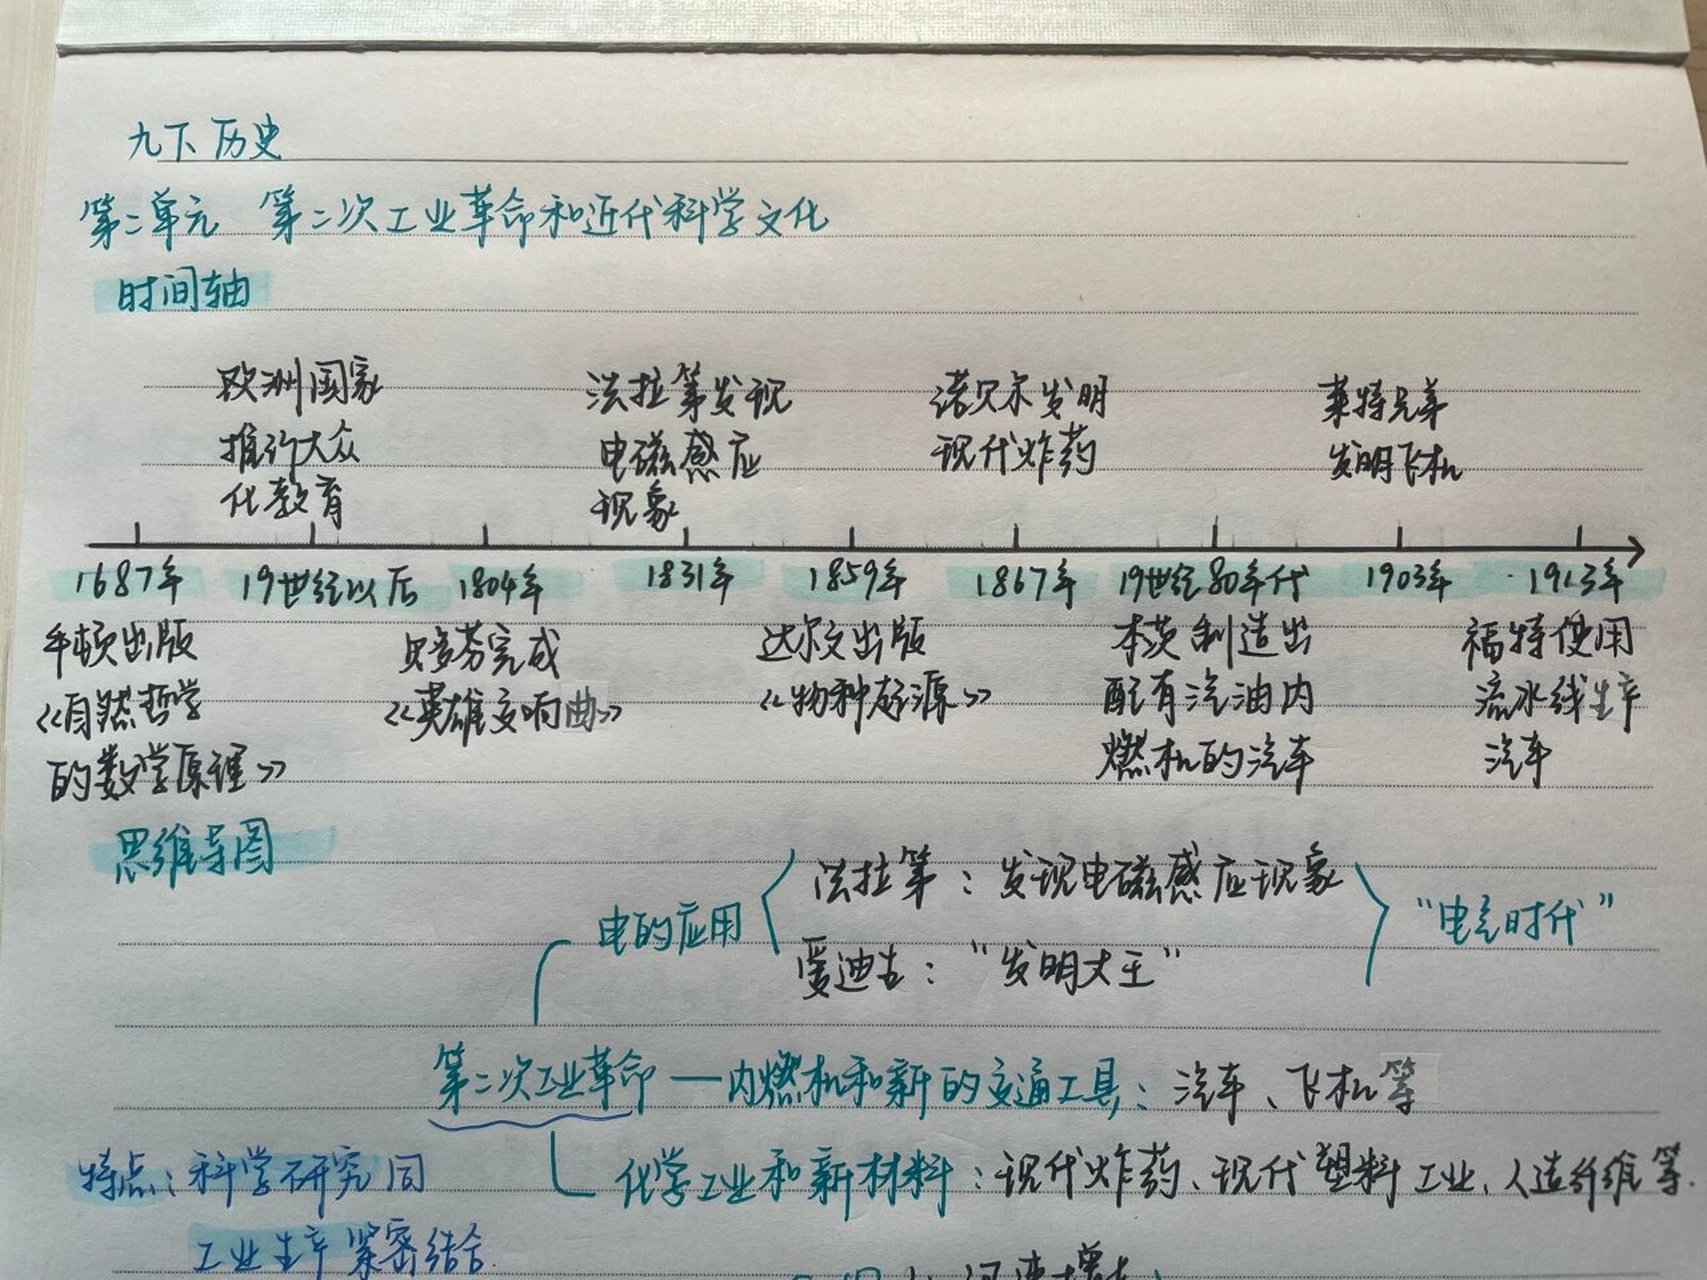 九下历史
第二单元 第二次工业革命和近代科学文化
时间轴
欧洲国家 法拉第发现 诺贝尔发明 莱特兄弟
推行大众 电磁感应 现代炸药 发明飞机
化教育 现象
1687年 19世纪以后 1804年 1831年 1859年 1867年 19世纪80年代 1903年 1913年
牛顿出版 贝多芬完成 达尔文出版 本茨制造出 福特使用
《自然哲学 《英雄交响曲》 《物种起源》 配有汽油内 流水线生产
的数学原理》 燃机的汽车 汽车
思维导图
法拉第：发现电磁感应现象
电的应用 "电气时代"
爱迪生："发明大王"
第二次工业革命——内燃机和新的交通工具：汽车、飞机等
特点：科学研究同 化学工业和新材料：现代炸药、现代塑料工业、人造纤维等.
工业生产紧密结合.